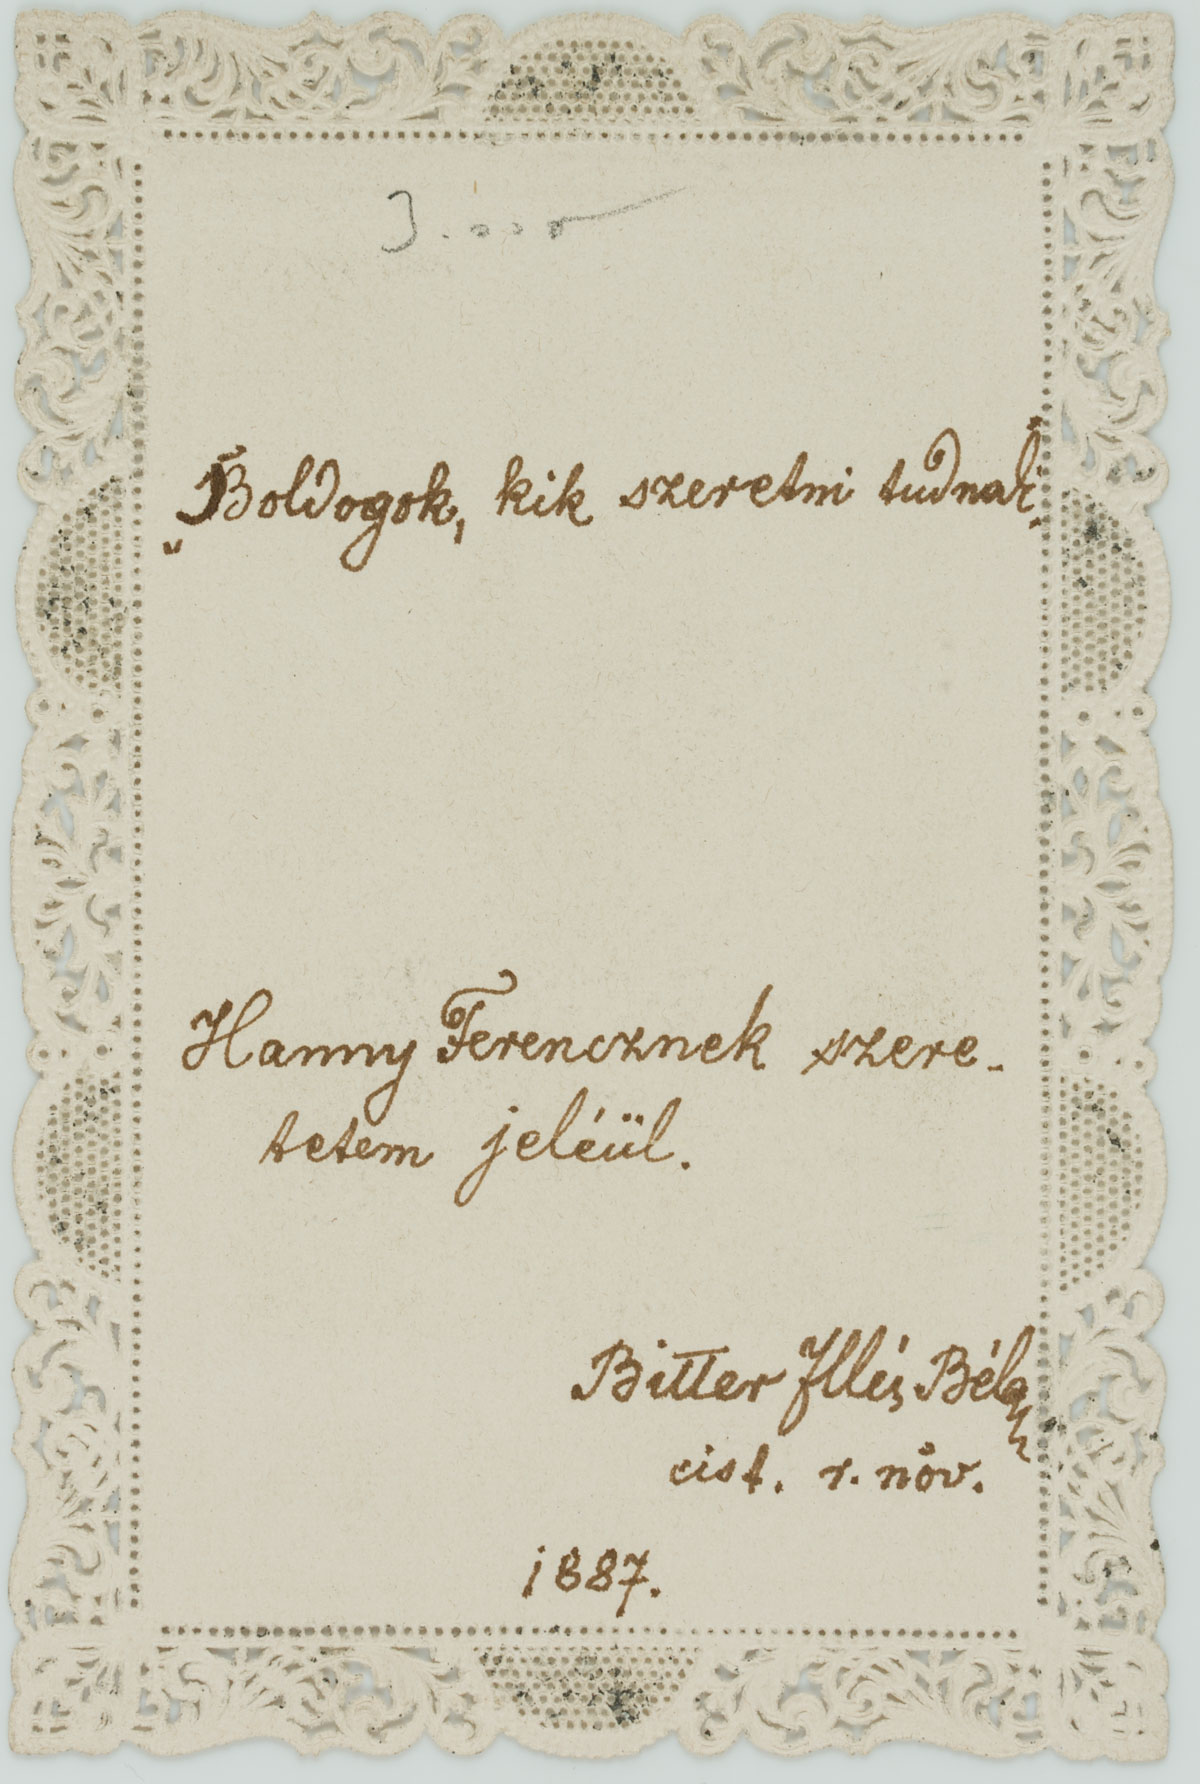 3.000
„Boldogok, kik szeretni tudnak"
Hanny Ferencznek szere-
tetem jeléül.
Bitter Illés Béla
cist. r. növ.
1887.